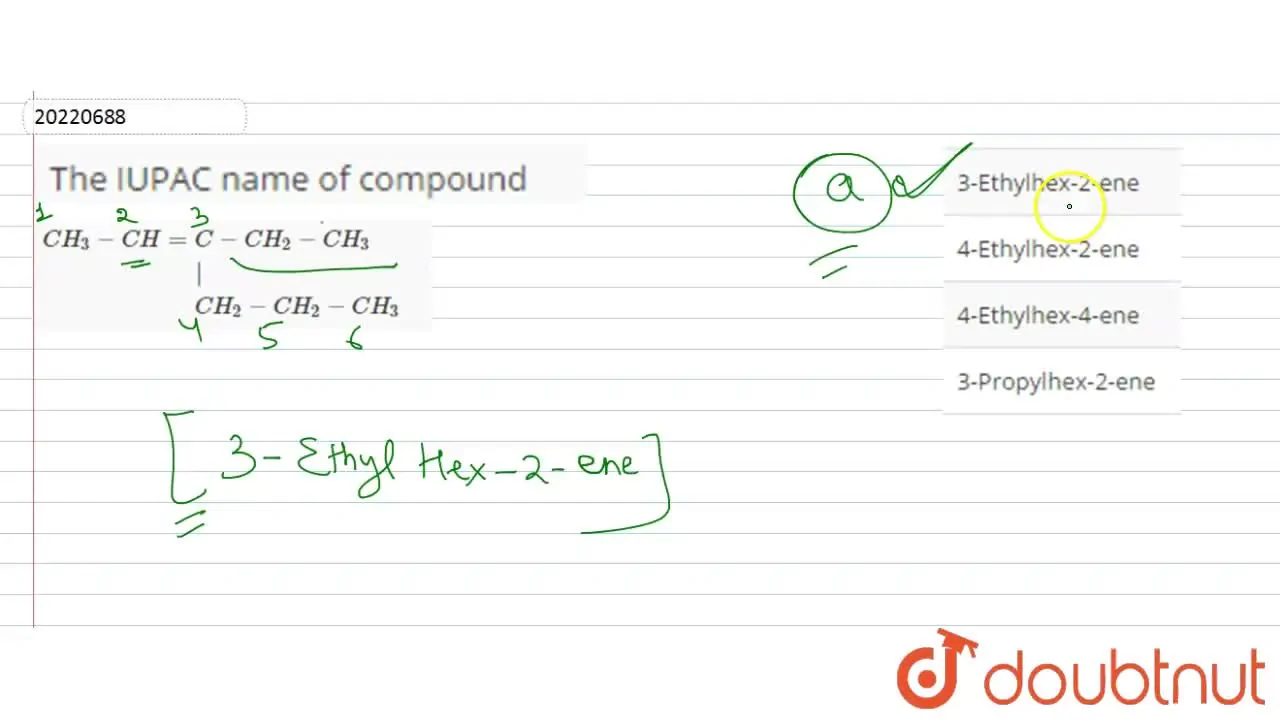 20220688
The IUPAC name of compound
1 2 3
CH₃ − CH = C − CH₂ − CH₃
|
CH₂ − CH₂ − CH₃
4 5 6
a a
3-Ethylhex-2-ene
4-Ethylhex-2-ene
4-Ethylhex-4-ene
3-Propylhex-2-ene
[3-Ethyl Hex-2-ene]
doubtnut